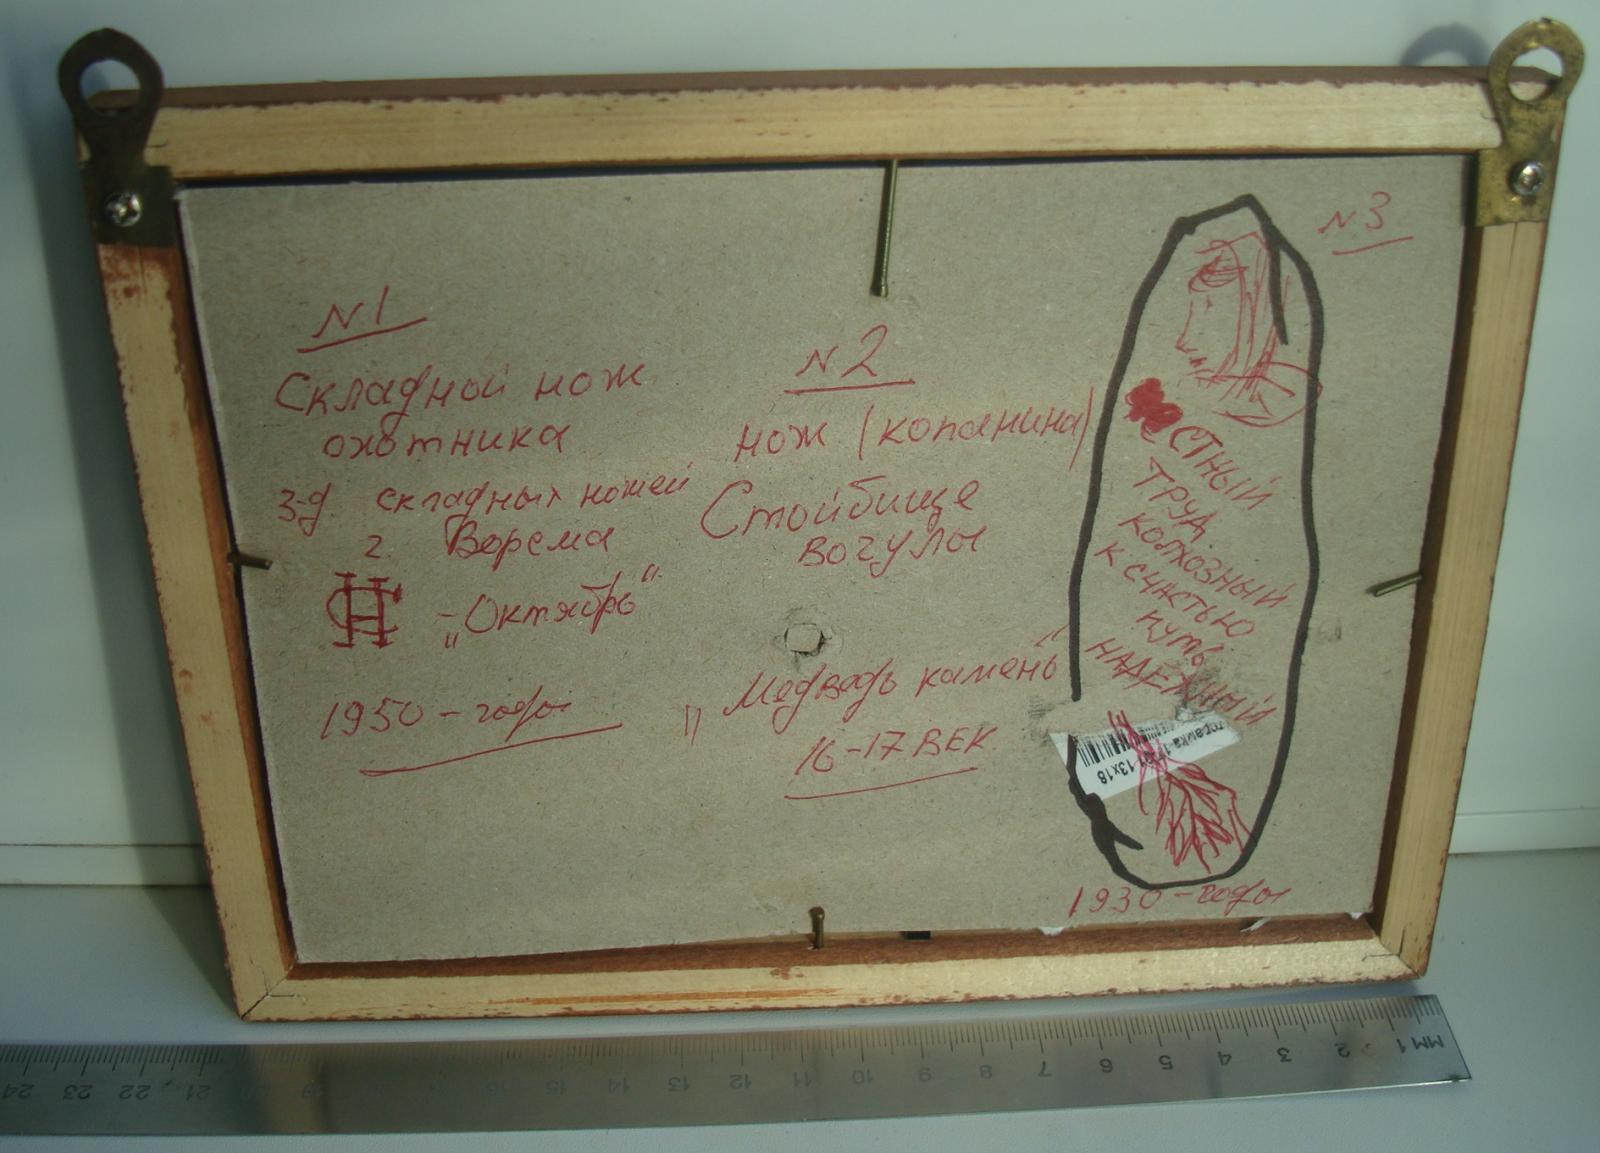 N1
Складной нож
охотника
з-д складных ножей
г. Ворсма
„Октябрь“
1950 – годы
N2
нож (копанина)
Стойбище
вогулы
„Медведь камень“
16-17 ВЕК
N3
СТНЫЙ
ТРУД
КОЛХОЗНЫЙ
К СЧАСТЬЮ
ПУТЬ
НАДЕЖНЫЙ
13x18
1930 – годы
ММ 1 2 3 4 5 6 7 8 9 10 11 12 13 14 15 16 21 22 23 24